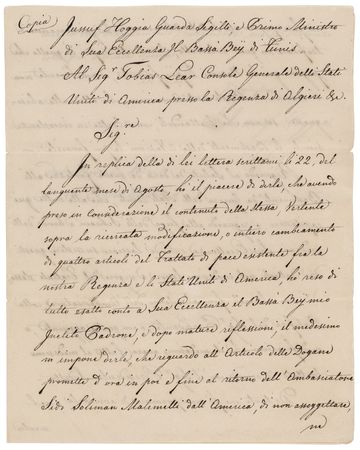 Copia
Jussuf Hoggia Guarda Sigilli e Primo Ministro
di Sua Eccellenza Il Bassa Bey di Tunis
Al Sig.r Tobias Lear Console Generale delli Stati
Uniti di America presso la Regenza di Algieri &c.
Sig.re
In replica della di lei lettera scrittami li 22, del
languente mese di Agosto, ho il piacere di dirle, che avendo
preso in considerazione il contenuto della stessa Vertente
sopra la ricercata modificazione, o intiero cambiamento
di quattro articoli del Trattato di pace esistente fra la
nostra Regenza e li Stati Uniti di America, hò reso di
tutto esatto conto a Sua Eccellenza il Bassa Bey mio
Inclito Padrone, e dopo mature riflessioni, il medesimo
m'impone dirle, che riguardo all'Articolo delle Dogane
promette d'ora in poi e fino al ritorno dell'Ambasciatore
Sidi Soliman Malimelli dall'America, di non assoggettare,